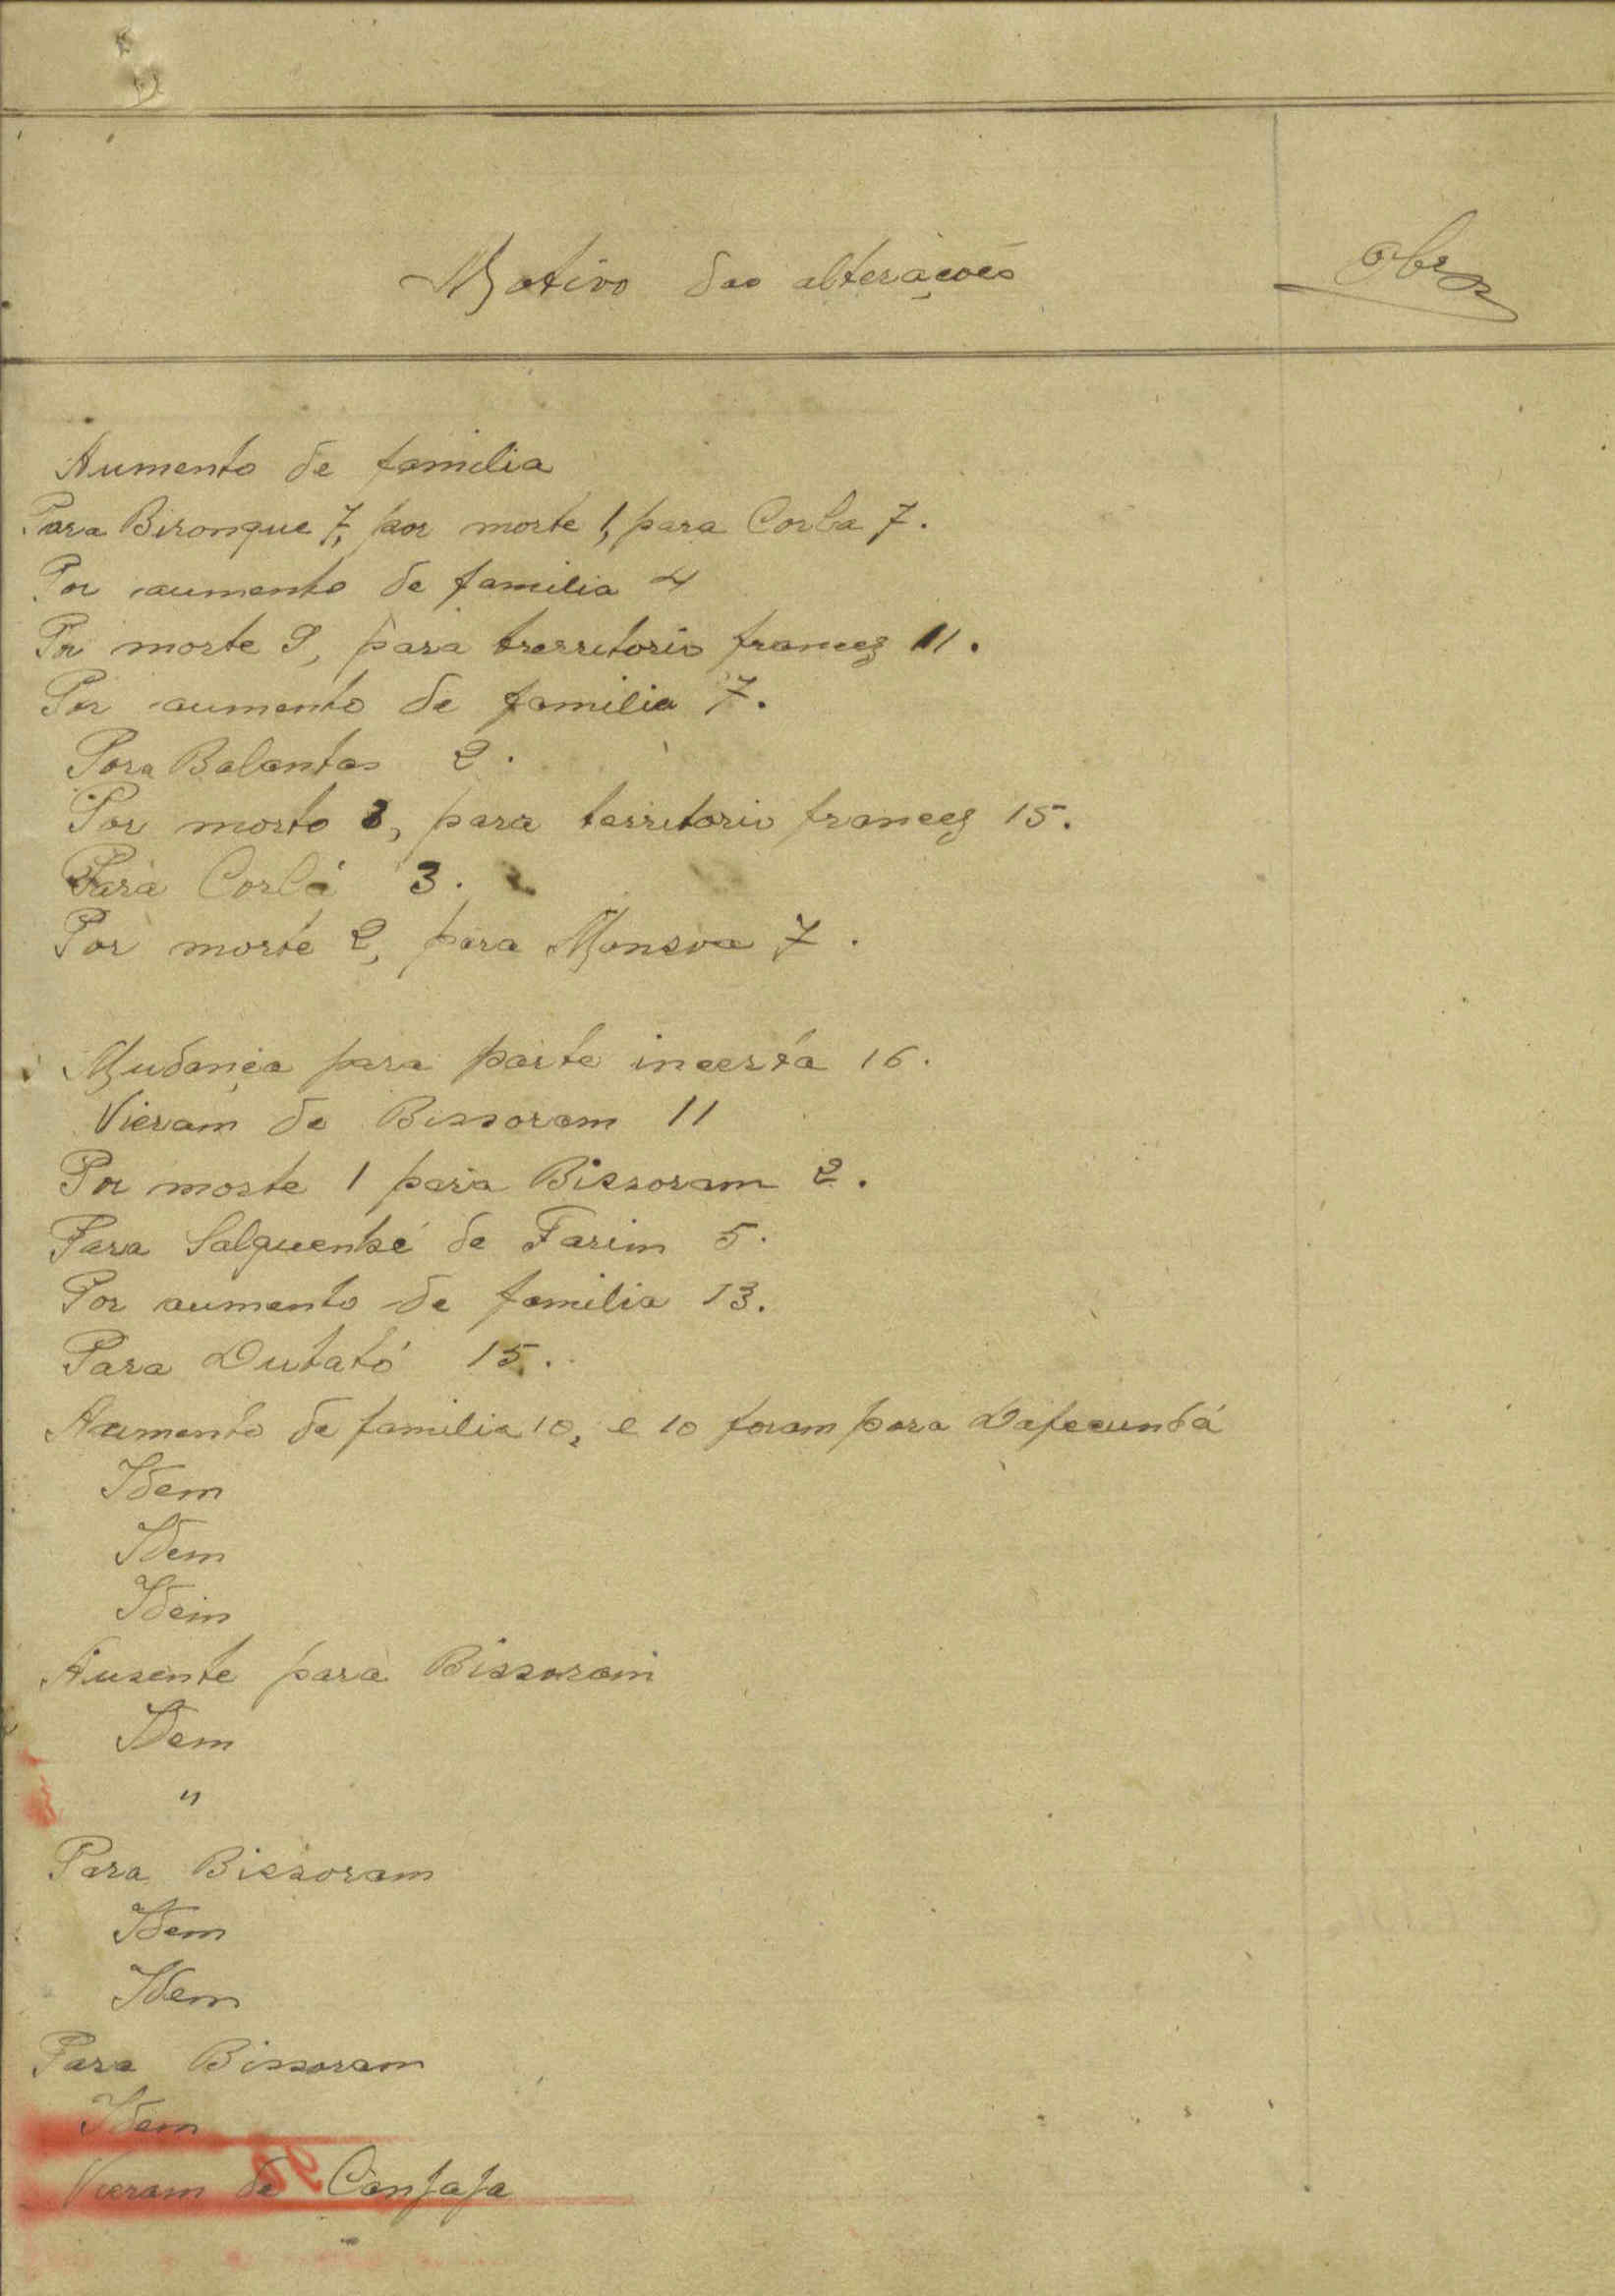 Motivo das alterações
Obs
Aumento de familia
Para Bironque 7, por morte 1, para Corla 7.
Por aumento de familia 4
Por morte 9, para trerritorio francez 11.
Por aumento de familia 7.
Para Balantas 2.
Por morte 3, para territorio francez 15.
Para Corlá 3.
Por morte 2, para Monsoa 7.
Mudança para parte incerta 16.
Vieram de Bissoram 11
Por morte 1 para Bissoram 2.
Para Salquenhé de Farim 5.
Por aumento de familia 13.
Para Dutató 15.
Aumento de familia 10, e 10 foram para Dafecundá
Idem
Idem
Idem
Ausente para Bissoram
Idem
"
Para Bissoram
Idem
Idem
Para Bissoram
Idem
Vieram de Canjaja